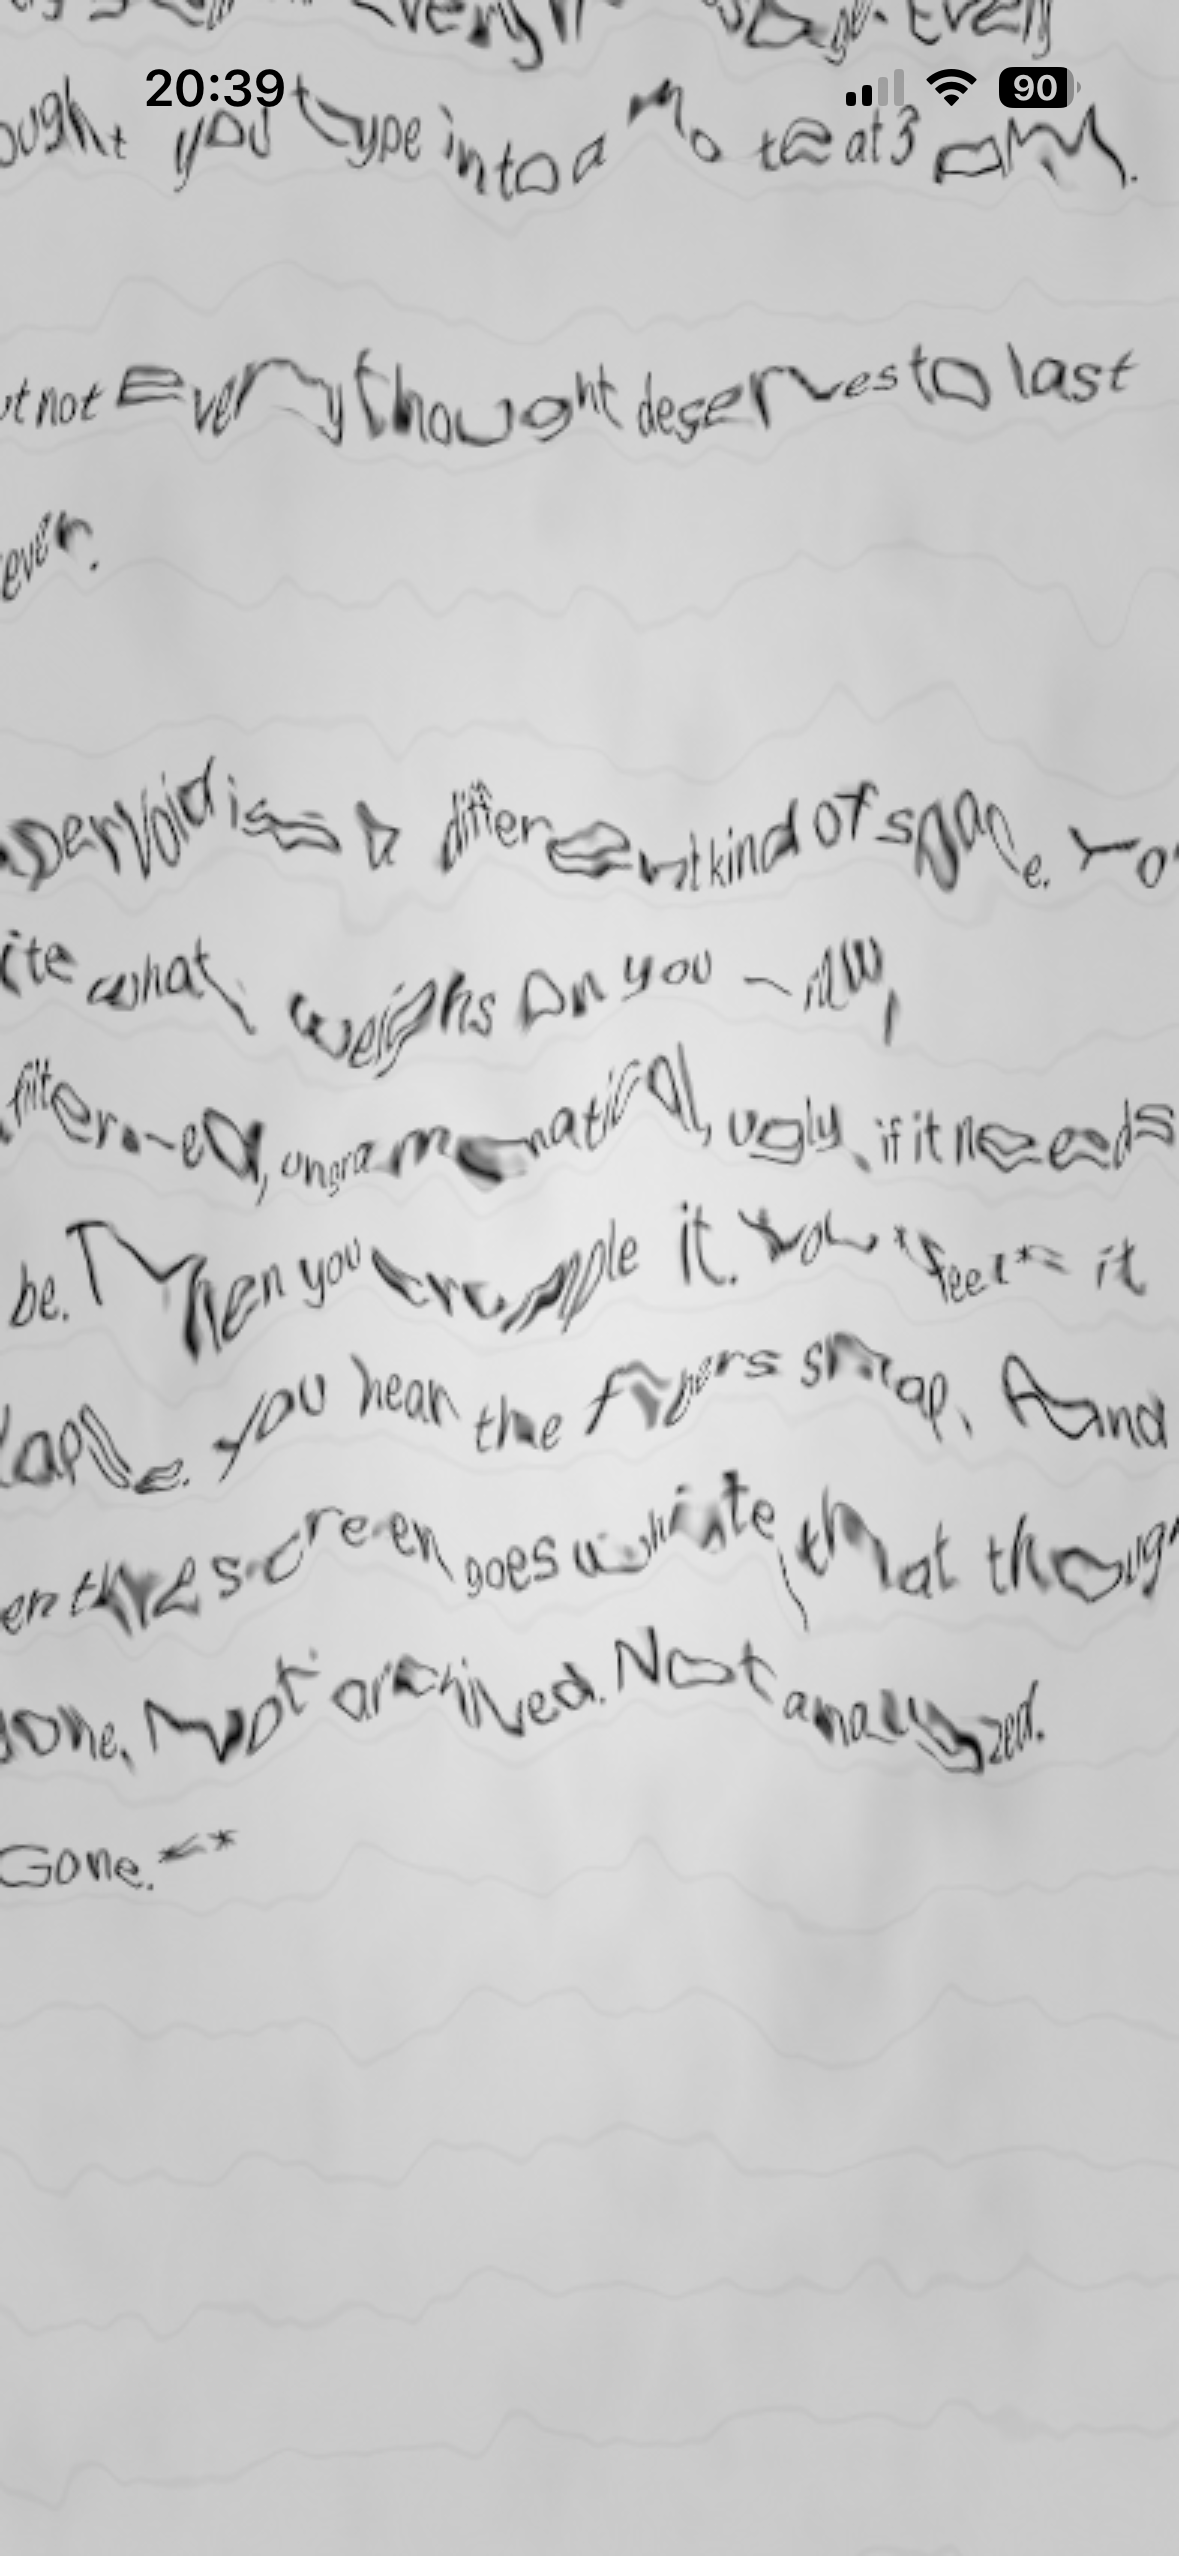 every message. Every
20:39 90
ought you type into a note at 3 am.
ut not every thought deserves to last
ever.
aperVoid is a different kind of space. Yo
ite what weighs on you — raw,
filtered, ungrammatical, ugly if it needs
be. Then you crumple it. You *feel* it
lapse. You hear the fibers snap. And
en the screen goes white, that though
gone. Not archived. Not analyzed.
Gone.**